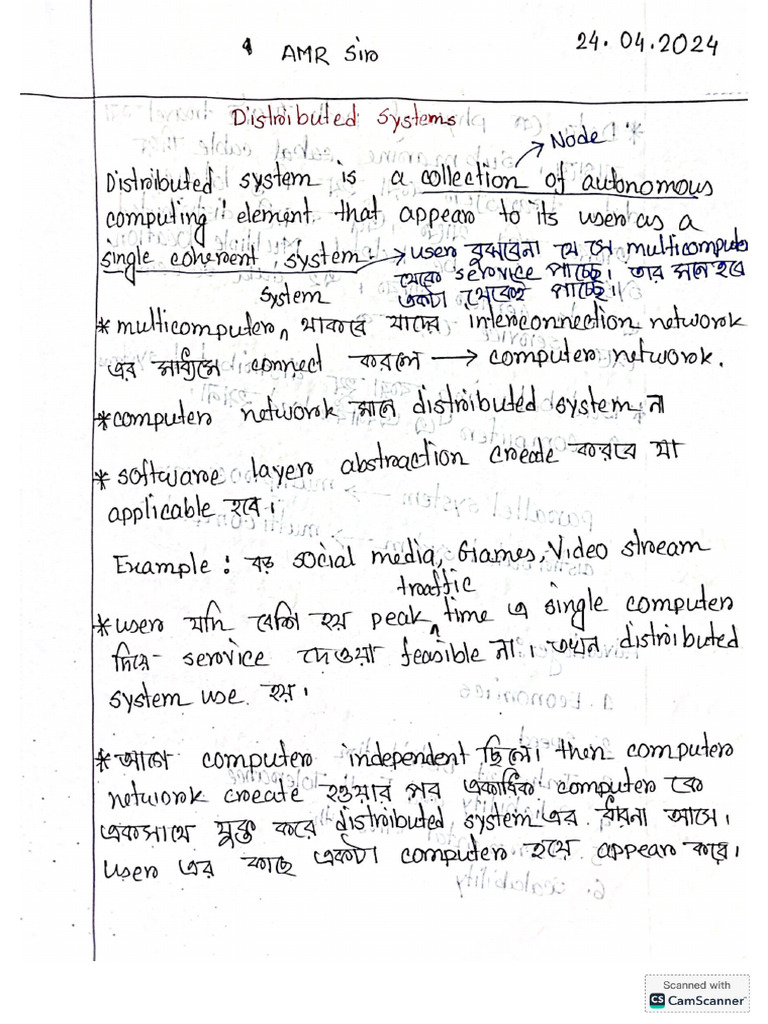 AMR Sir
24.04.2024
Distributed Systems
Node
Distributed system is a collection of autonomous
computing element that appear to its user as a
single coherent system. → user বুঝবেনা যে সে multicomputer
থেকে service পাচ্ছে। তার মনে হবে
একটা থেকেই পাচ্ছে।
system
* multicomputer থাকবে যাদের interconnection network
এর মাধ্যমে connect করলে → computer network.
* computer network মানে distributed system না
* software layer abstraction create করবে যা
applicable হবে।
Example: বড় social media, Games, Video stream
traffic
* user যদি বেশি হয় peak time এ single computer
দিয়ে service দেওয়া feasible না। তখন distributed
system use হয়।
* আগে computer independent ছিলো। then computer
network create হওয়ার পর একাধিক computer কে
একসাথে যুক্ত করে distributed system এর ধারনা আসে।
user এর কাছে একটা computer হয়ে appear করে।
Scanned with
CS CamScanner